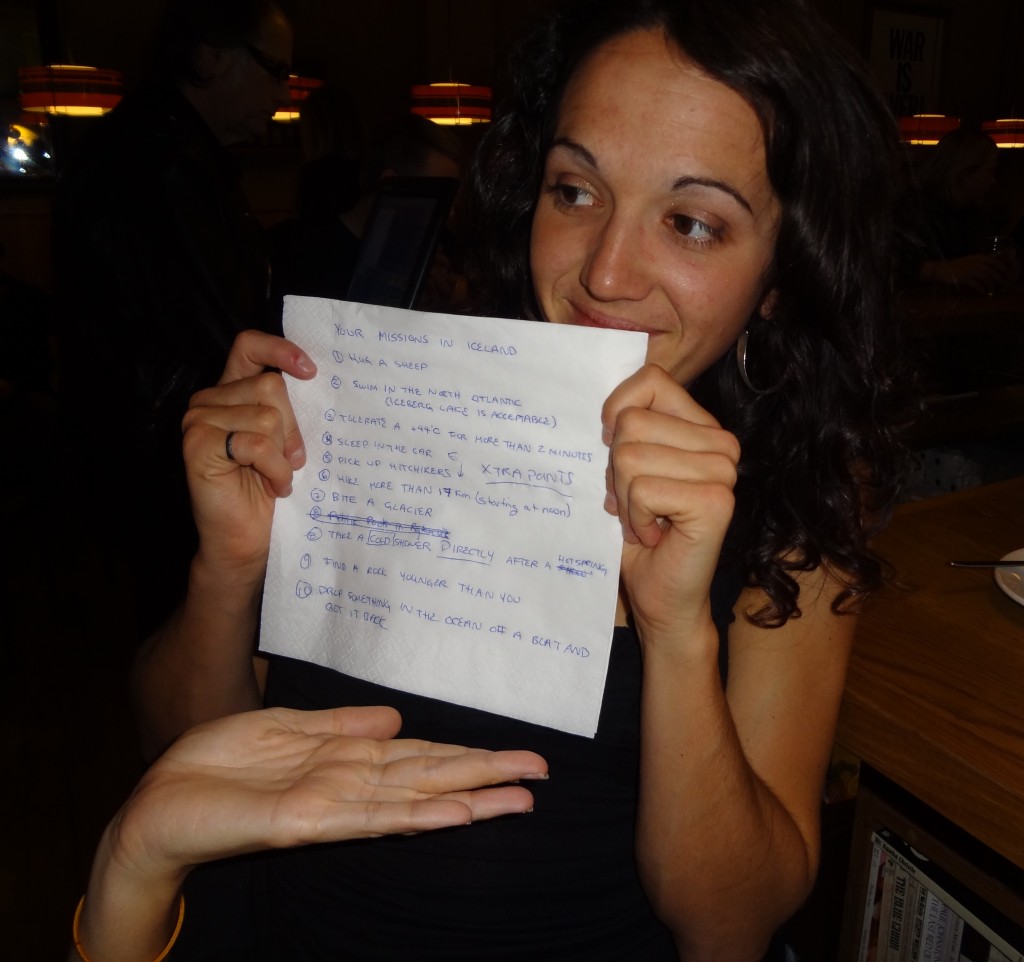 WAR
IS
YOUR MISSIONS IN ICELAND
① HUG A SHEEP
② SWIM IN THE NORTH ATLANTIC
(ICEBERG LAKE IS ACCEPTABLE)
③ TOLERATE A +44°C FOR MORE THAN 2 MINUTES
④ SLEEP IN THE CAR
⑤ PICK UP HITCHIKERS ↓ XTRA POINTS
⑥ HIKE MORE THAN 17 Km (starting at noon)
⑦ BITE A GLACIER
⑧ TAKE A COLD SHOWER DIRECTLY AFTER A HOTSPRING
⑨ FIND A ROCK YOUNGER THAN YOU
⑩ DROP SOMETHING IN THE OCEAN OFF A BOAT AND
GET IT BACK